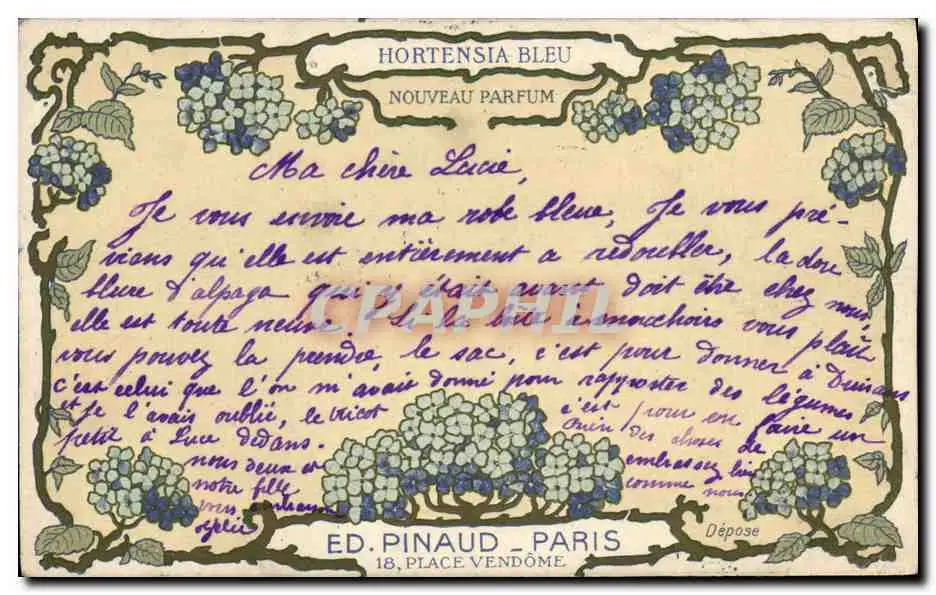 HORTENSIA BLEU
NOUVEAU PARFUM
Ma chère Lucie,
Je vous envoie ma robe bleue, Je vous pré-
viens qu'elle est entièrement a redoubler, la dou
blure d'alpaga qui y était avant doit être chez nous,
elle est toute neuve. Si la boîte a mouchoirs vous plait
vous pouvez la prendre, le sac, c'est pour donner à
c'est celui que l'on m'avait donné pour rapporter des légumes
et je l'avais oublié, le tricot c'est pour en faire un
petit à Luce dedans. des choses de
nous deux et embrassez bien
notre fille comme nous.
vous
CPAPHIL
ED. PINAUD _ PARIS
18, PLACE VENDÔME
Déposé